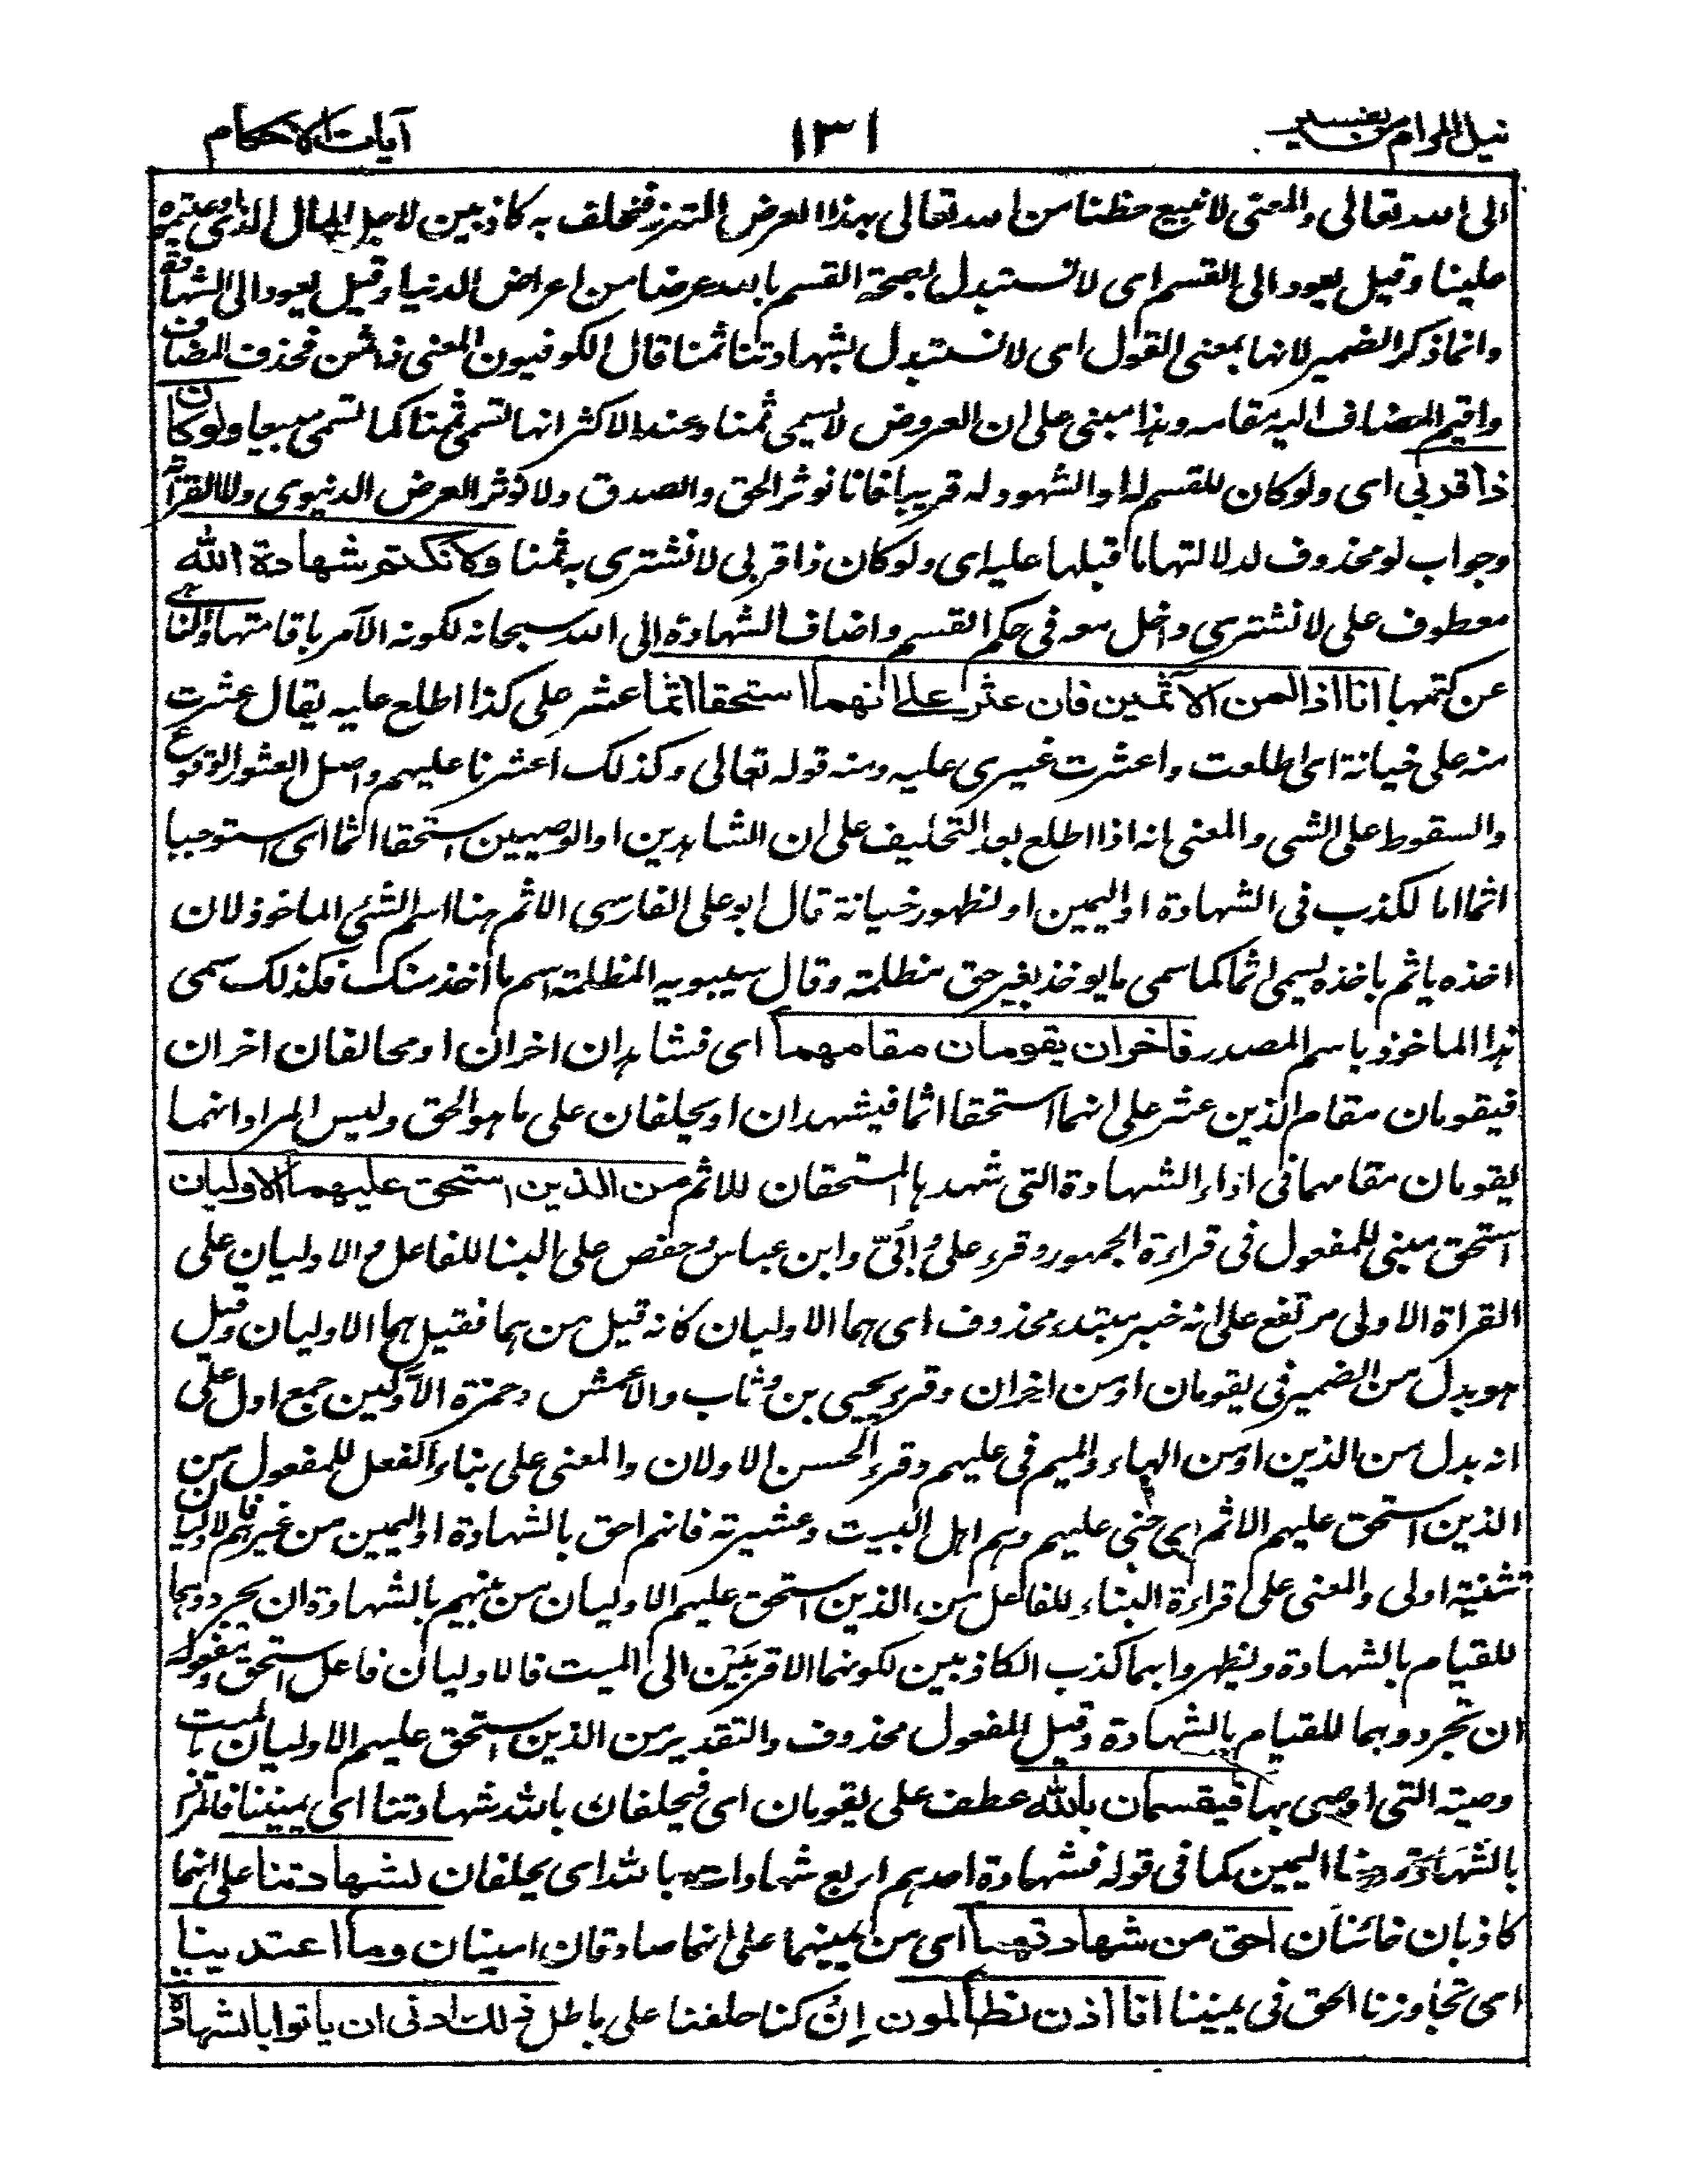 نيل المرام من تفسير
١٣١
آيات الاحكام
الى الله تعالى والمعنى لا نبيع حظنا من الله تعالى بهذا العرض النزر فنحلف به كاذبين لاجل المال الذى ادعيتموه
علينا وقيل يعود الى القسم اى لا نستبدل بصحة القسم بالله عرضا من اعراض الدنيا وقيل يعود الى الشهادة
وانما ذكر الضمير لانها بمعنى القول اى لا نستبدل بشهادتنا ثمنا قال الكوفيون المعنى ذا ثمن فحذف المضاف
واقيم المضاف اليه مقامه وهذا مبنى على ان العروض لا يسمى ثمنا وعند الاكثر انها تسمى ثمنا كما تسمى مبيعا ولو كان
ذا قربى اى ولو كان المقسم له او المشهود له قريبا فانا نوثر الحق والصدق ولا نوثر العرض الدنيوى ولا القرابة
وجواب لو محذوف لدلالة ما قبلها عليه اى ولو كان ذا قربى لا نشترى به ثمنا ولا نكتم شهادة الله
معطوف على لا نشترى داخل معه فى حكم القسم واضاف الشهادة الى الله سبحانه لكونه الآمر باقامتها والناهى
عن كتمها انا اذا لمن الآثمين فان عثر على انهما استحقا اثما عثر على كذا اطلع عليه يقال عثرت
منه على خيانة اى اطلعت واعثرت غيرى عليه ومنه قوله تعالى وكذلك اعثرنا عليهم واصل العثور الوقوع
والسقوط على الشى والمعنى انه اذا اطلع بعد التحليف على ان الشاهدين او الوصيين استحقا اثما اى استوجبا
اثما اما لكذب فى الشهادة او اليمين او لظهور خيانة قال ابو على الفارسى الاثم هنا اسم الشئ الماخوذ لان
اخذه ياثم باخذه يسمى اثما كما سمى ما يوخذ بغير حق مظلمة وقال سيبويه المظلمة اسم ما اخذ منك فكذلك سمى
هذا الماخوذ باسم المصدر فاخران يقومان مقامهما اى فشاهدان اخران او محالفان اخران
فيقومان مقام الذين عثر على انهما استحقا اثما فيشهدان او يحلفان على ما هو الحق وليس المراد انهما
يقومان مقامهما فى اداء الشهادة التى شهدها المستحقان للاثم من الذين استحق عليهما الاوليان
استحق مبنى للمفعول فى قراءة الجمهور وقرء على وابى وابن عباس وحفص على البنا للفاعل والاوليان على
القراة الاولى مرتفع على انه خبر مبتدء محذوف اى هما الاوليان كانه قيل من هما فقيل هما الاوليان وقيل
هو بدل من الضمير فى يقومان او من اخران وقرء يحيى بن وثاب والاعمش وحمزة الاولين جمع اول على
انه بدل من الذين او من الهاء والميم فى عليهم وقرء الحسن الاولان والمعنى على بناء الفعل للمفعول من
الذين استحق عليهم الاثم اى جنى عليهم وهم اهل البيت وعشيرته فانهم احق بالشهادة او اليمين من غيرهم فالاوليان
تثنية اولى والمعنى على قراءة البناء للفاعل من الذين استحق عليهم الاوليان من بينهم بالشهادة ان يجردوهما
للقيام بالشهادة ويظهروا بهما كذب الكاذبين لكونهما الاقربين الى الميت فالاوليان فاعل استحق ومفعوله
ان يجردوهما للقيام بالشهادة وقيل المفعول محذوف والتقدير من الذين استحق عليهم الاوليان بالميت
وصيته التى اوصى بها فيقسمان بالله عطف على يقومان اى فيحلفان بالله شهادتنا اى يميننا فالمراد
بالشهادة هنا اليمين كما فى قوله فشهادة احدهم اربع شهادات بالله اى يحلفان لشهادتنا على انهما
كاذبان خائنان احق من شهادتهما اى من يمينهما على انهما صادقان امينان وما اعتدينا
اى تجاوزنا الحق فى يميننا انا اذن لظالمون ان كنا حلفنا على باطل ذلك ادنى ان ياتوا بالشهادة